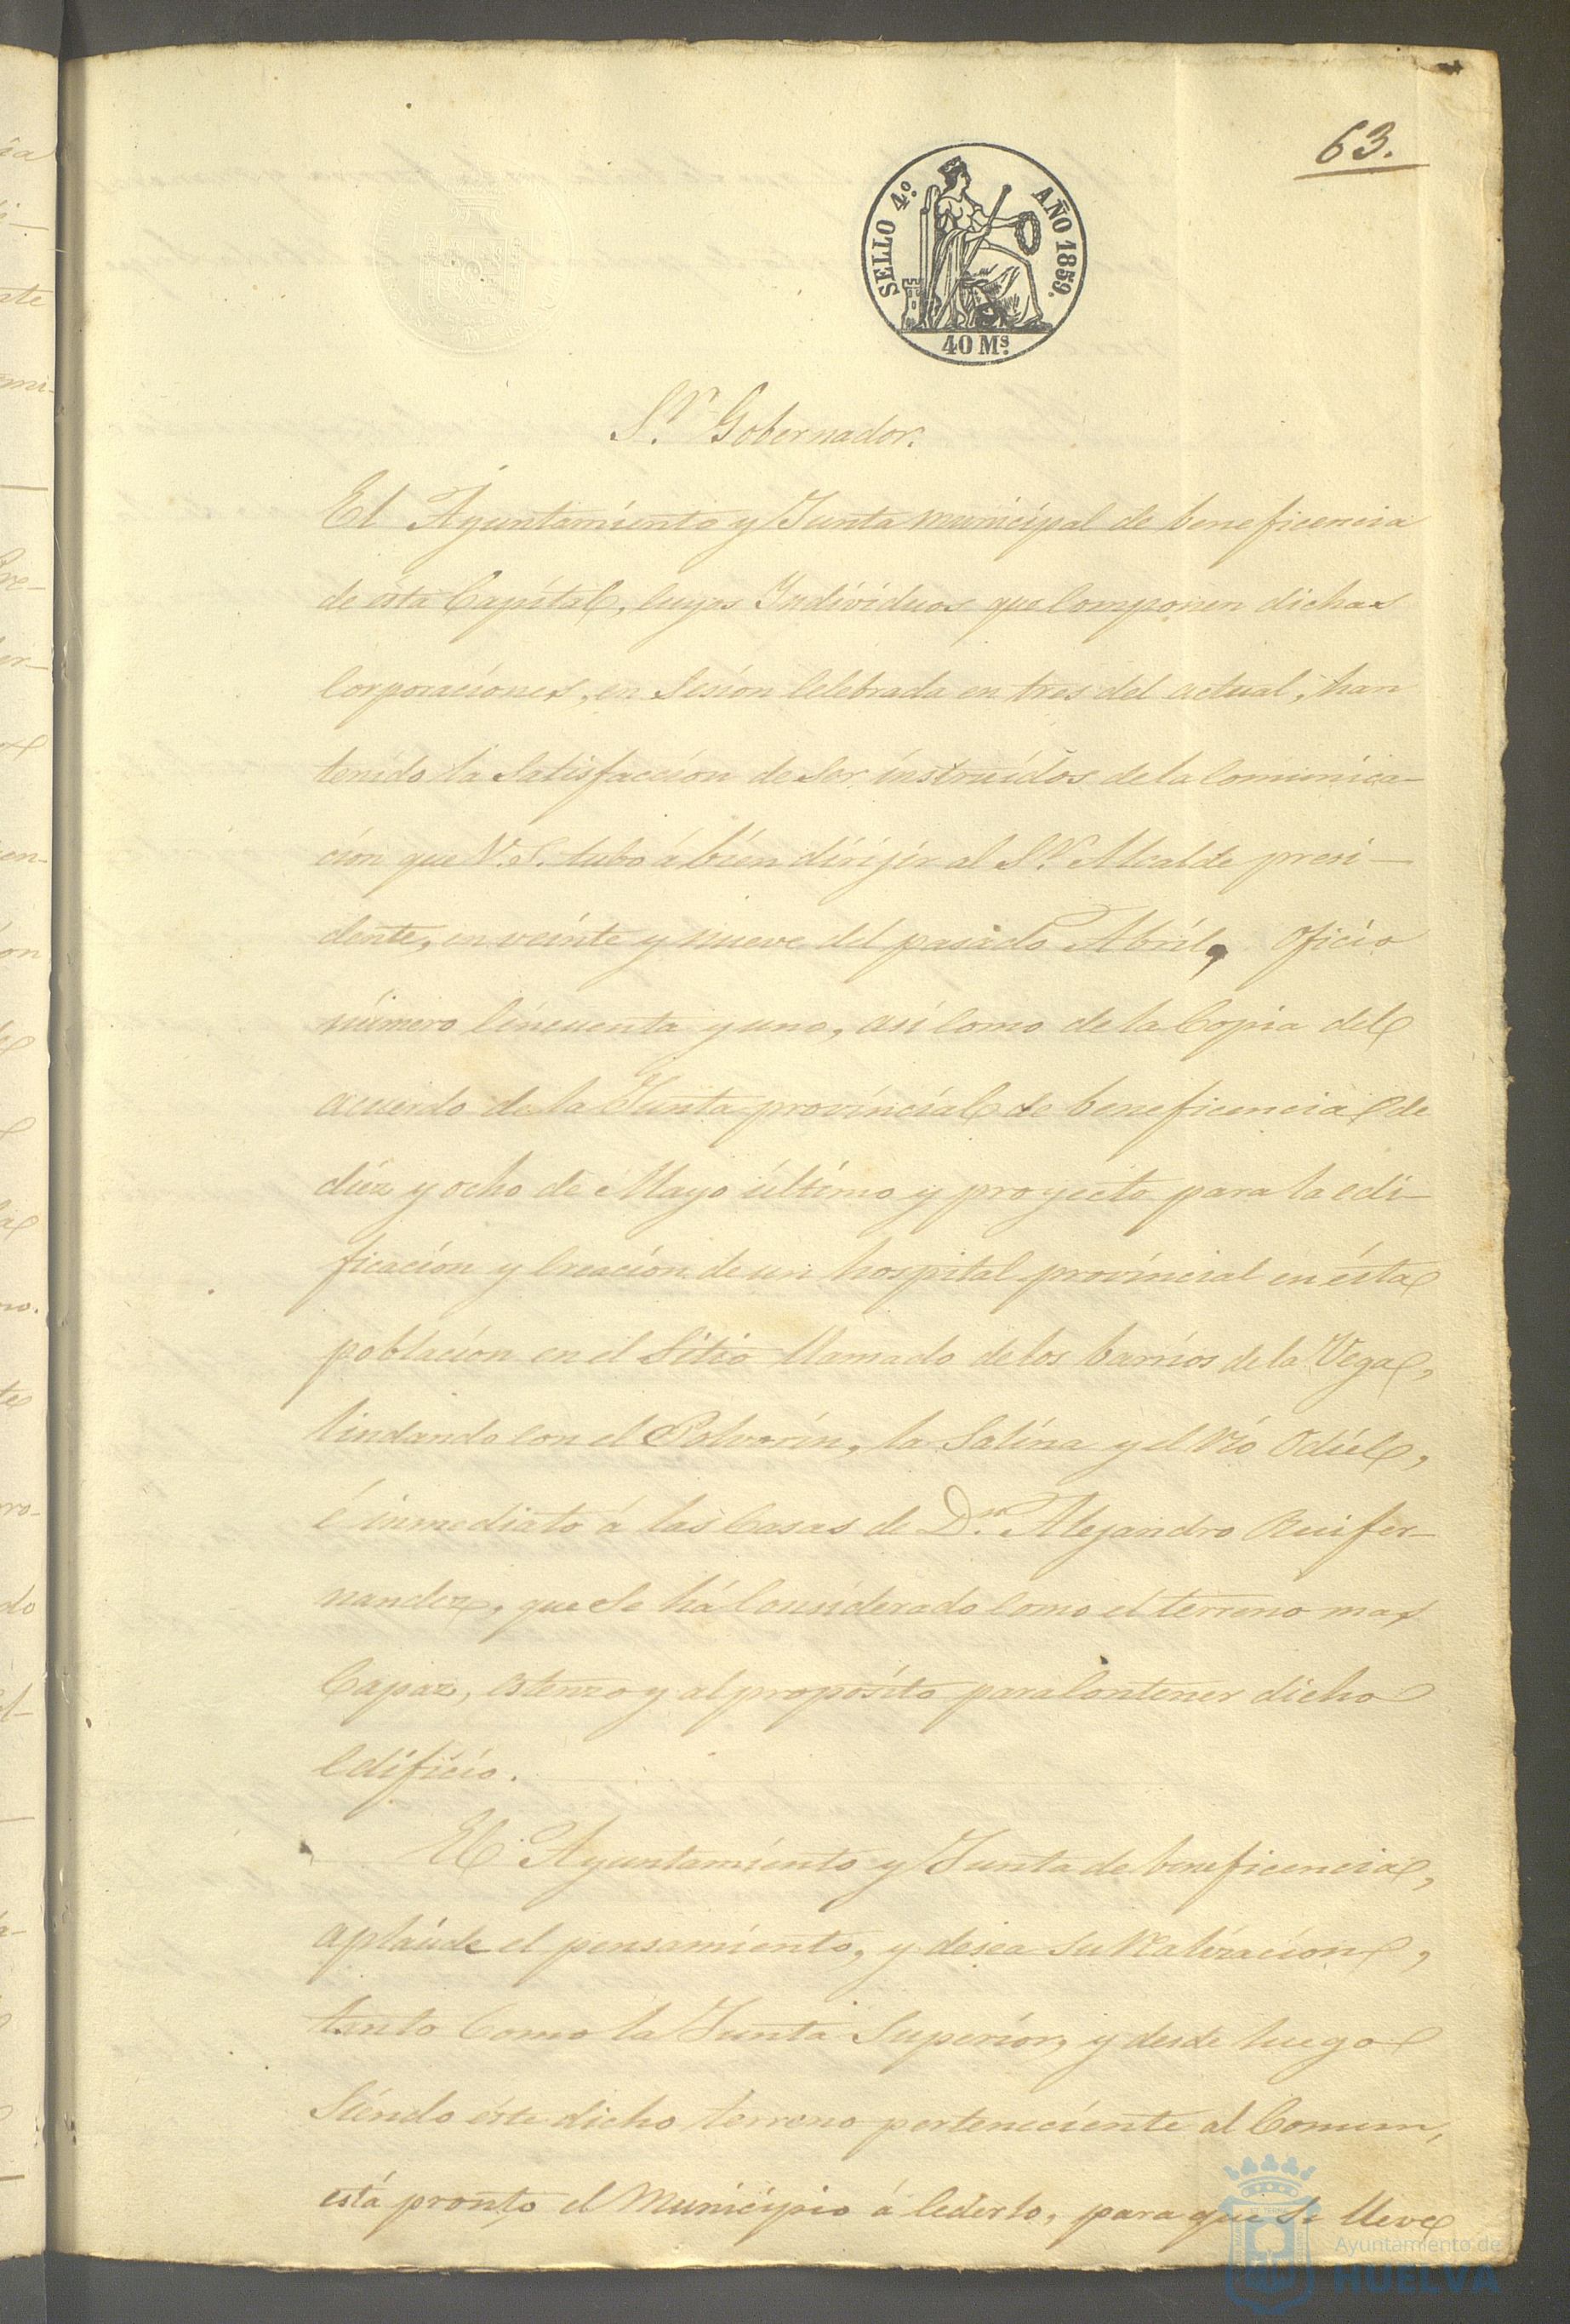 63.
SELLO 4º. AÑO 1859.
40 Ms.
Sr. Gobernador.
El Ayuntamiento y Junta municipal de beneficencia
de ésta Capítal, cuyos Indivíduos que componen dichas
Corporaciones, en Sesion Celebrada en tres del actual, han
tenido la Satisfaccion de Ser instruídos de la Comunica-
cion que V. S. tubo á bien dirijir al Sr. Alcalde presi-
dente, en veinte y nueve del pasado Abril, oficio
número Cincuenta y uno, así como de la Copia del
acuerdo de la Junta provincial de beneficencia de
diez y ocho de Mayo último y proyecto para la edi-
ficacion y Creacion de un hospital provincial en ésta
poblacion en el Sitio llamado de los barrios de la Vega,
lindando con el Polvorin, la Salina y el río Odiel,
é inmediato á las Casas de Dn. Alejandro Ruifer-
nandez, que Se há Considerado como el terreno mas
Capaz, estenso y al propósito para Contener dicho
edificio.
El Ayuntamiento y Junta de beneficencia,
aplaúde el pensamiento, y desea Su realizacion,
tanto Como la Junta Superior, y desde luego
Siendo éste dicho terreno perteneciente al Comun,
está pronto el Municipio á Cederlo, para que Se lleve
Ayuntamiento de
HUELVA